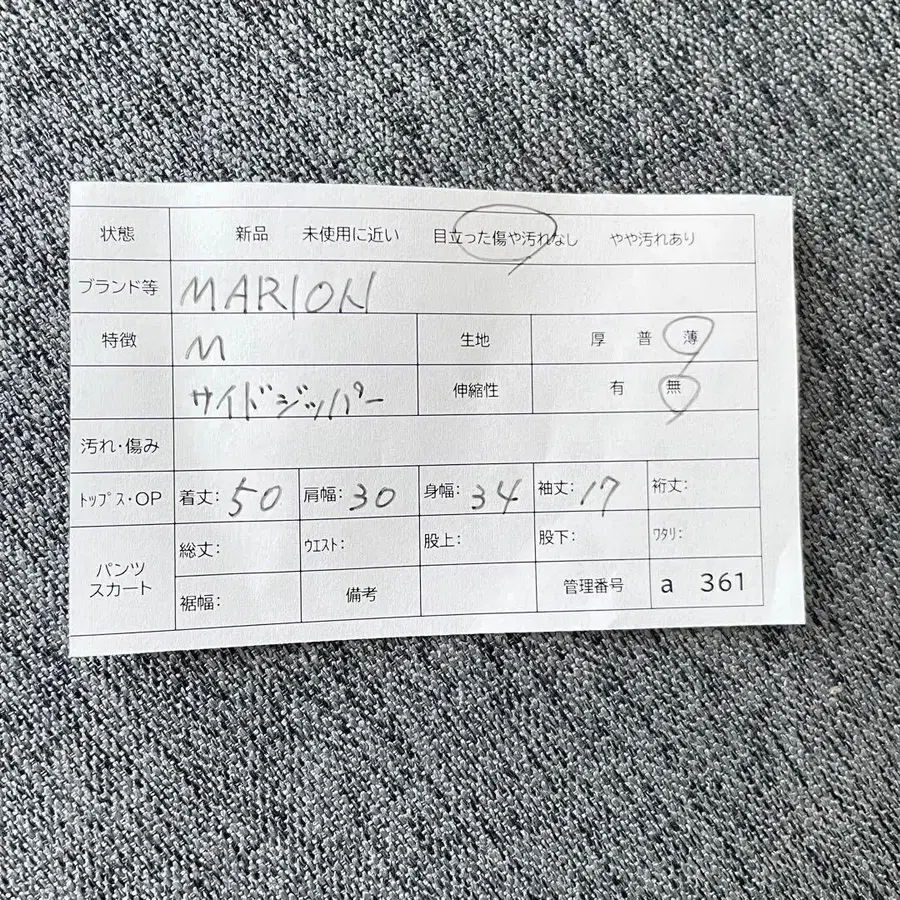 状態 新品 未使用に近い 目立った傷や汚れなし やや汚れあり
ブランド等 MARION
特徴 M 生地 厚 普 薄
サイドジッパー 伸縮性 有 無
汚れ・傷み
トップス・OP 着丈: 50 肩幅: 30 身幅: 34 袖丈: 17 裄丈:
パンツ スカート 総丈: ウエスト: 股上: 股下: ワタリ:
裾幅: 備考 管理番号 a 361